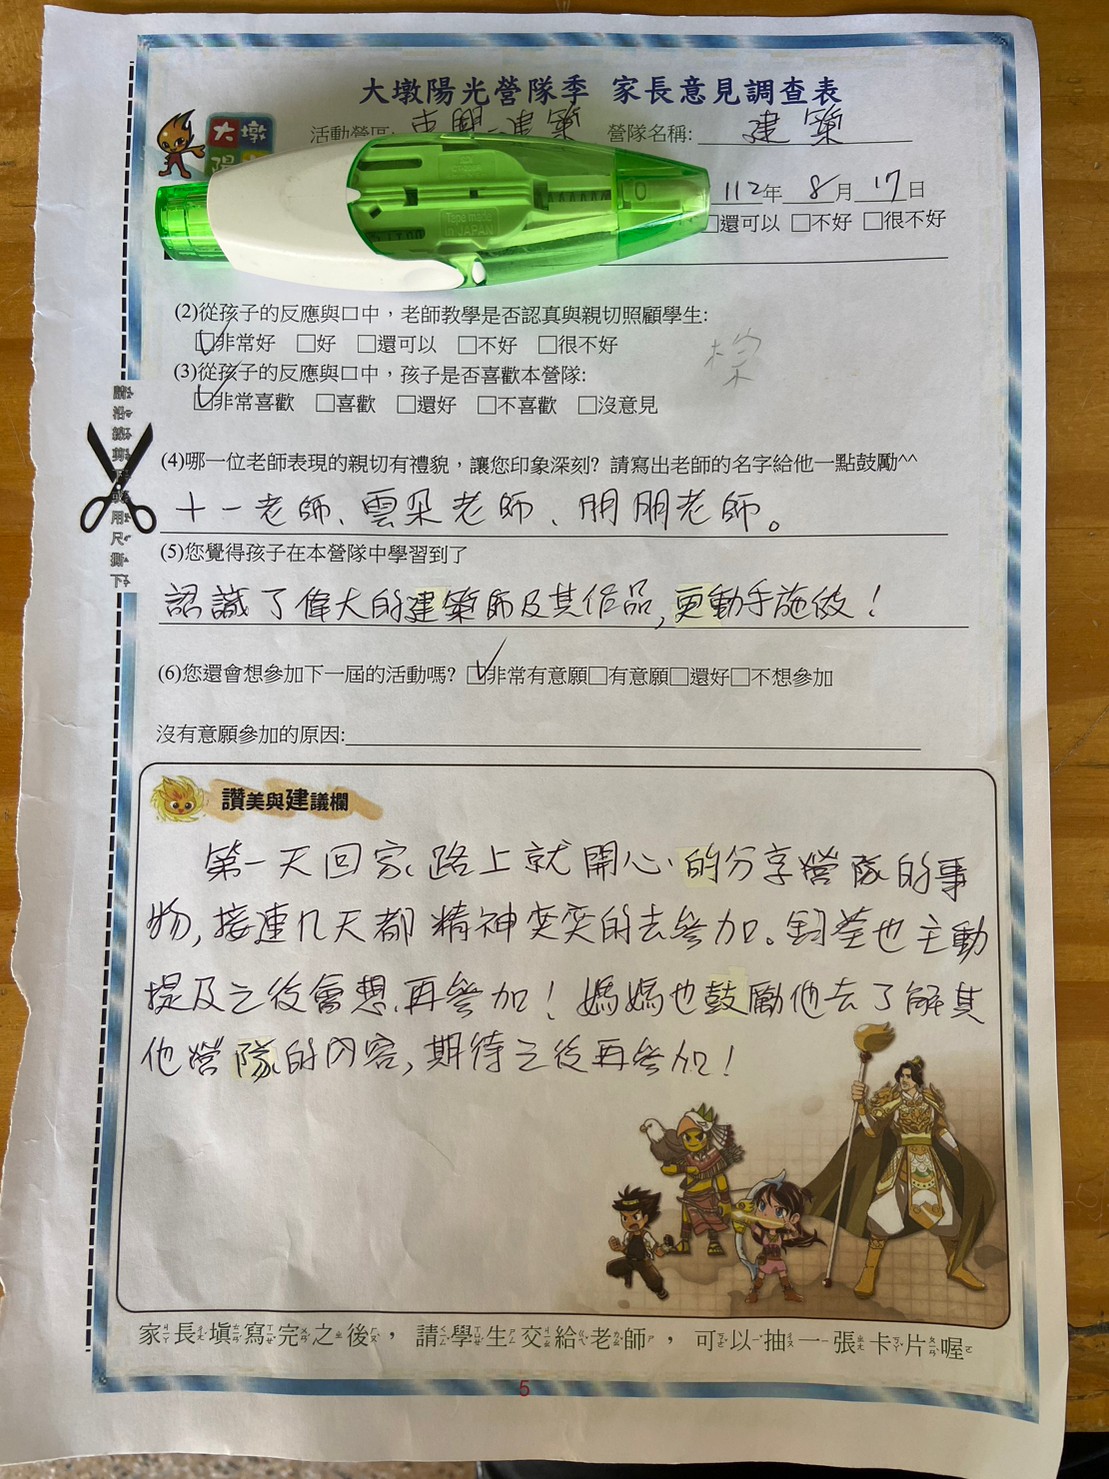 大墩陽光營隊季 家長意見調查表
大墩
活動營區: 東興-建築 營隊名稱: 建築
112年 8月 17日
□還可以 □不好 □很不好
Tape made in JAPAN
(2)從孩子的反應與口中，老師教學是否認真與親切照顧學生:
☑非常好 □好 □還可以 □不好 □很不好
棕
(3)從孩子的反應與口中，孩子是否喜歡本營隊:
☑非常喜歡 □喜歡 □還好 □不喜歡 □沒意見
(4)哪一位老師表現的親切有禮貌，讓您印象深刻? 請寫出老師的名字給他一點鼓勵^^
十一老師、雲朵老師、朋朋老師。
(5)您覺得孩子在本營隊中學習到了
認識了偉大的建築師及其作品,更動手施做！
(6)您還會想參加下一屆的活動嗎? ☑非常有意願□有意願□還好□不想參加
沒有意願參加的原因:
讚美與建議欄
第一天回家路上就開心的分享營隊的事
物,接連几天都精神奕奕的去參加。鈞荃也主動
提及之後會想再參加！媽媽也鼓勵他去了解其
他營隊的內容,期待之後再參加！
家長填寫完之後，請學生交給老師，可以抽一張卡片喔
5